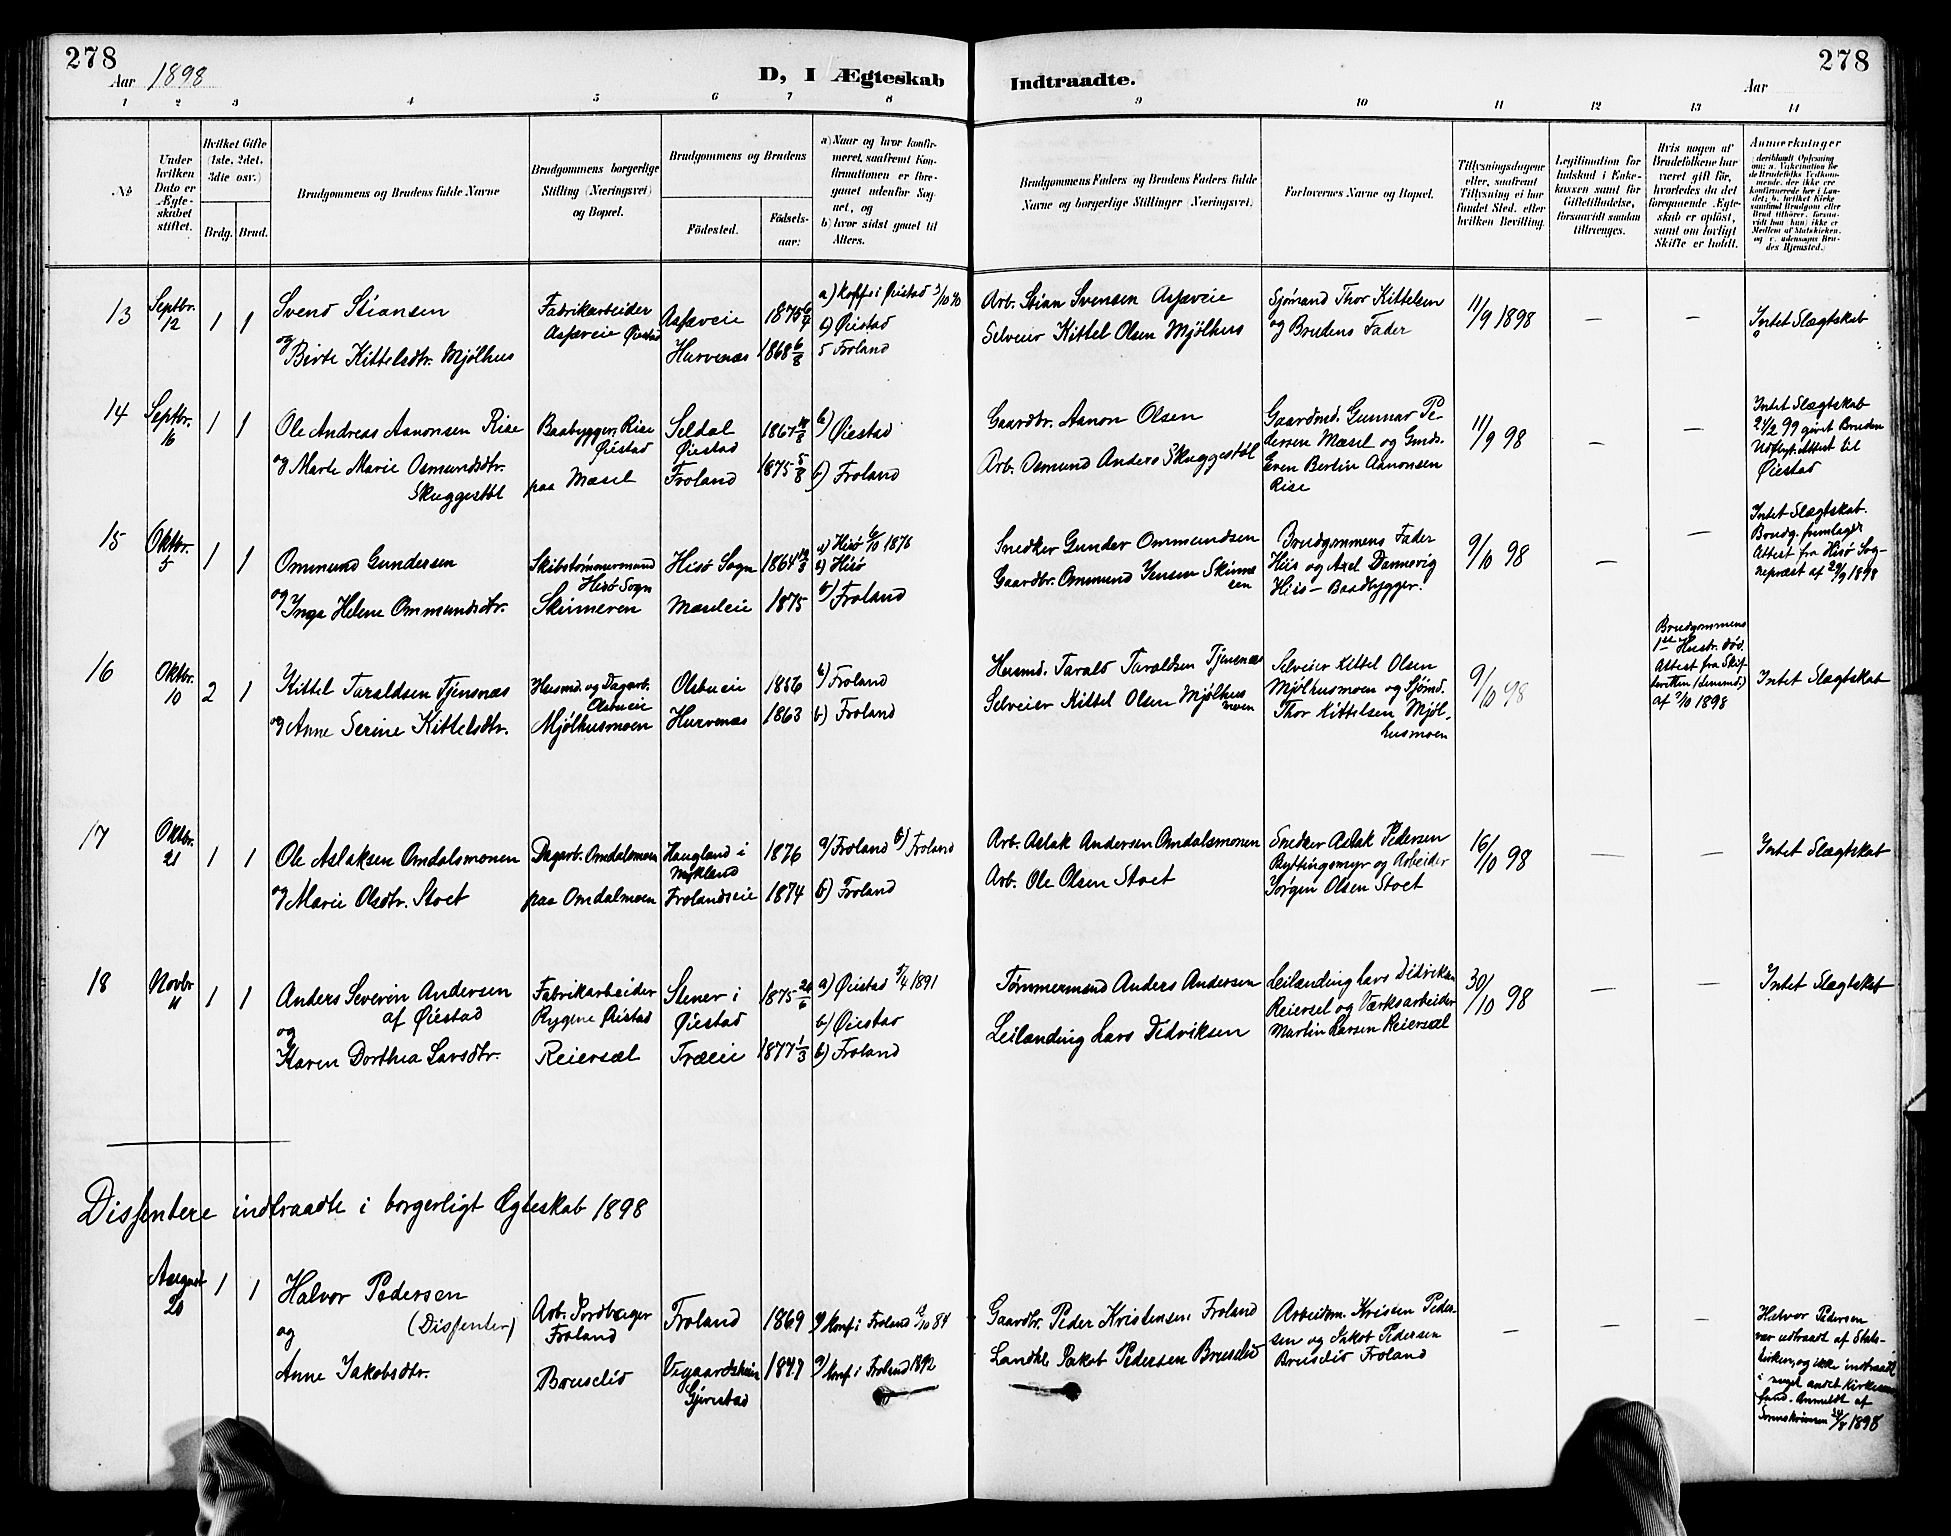 278
Aar 1898
D, I Ægteskab
Indtraadte.
Aar
278
1 2 3 4 5 6 7 8 9 10 11 12 13 14
No
Under hvilken Dato er Ægteskabet stiftet.
Hvilket Gifte (1ste, 2det, 3die osv.)
Brdg. Brud.
Brudgommens og Brudens fulde Navne
Brudgommens borgerlige Stilling (Næringsvei) og Bopæl.
Brudgommens og Brudens
Fødested.
Fødselsaar:
a) Naar og hvor konfirmeret, saafremt Konfirmationen er foregaaet udenfor Sognet, og
b) hvor sidst gaaet til Alters.
Brudgommens Faders og Brudens Faders fulde Navne og borgerlige Stillinger (Næringsvei)
Forlovernes Navne og Bopæl.
Tillysningsdagene eller, saafremt Tillysning ei har fundet Sted, efter hvilken Bevilling.
Legitimation for Indskud i Enkekassen samt for Giftetilladelse, forsaavidt saadan tiltrænges.
Hvis nogen af Brudefolkene har været gift før, hvorledes da det foregaaende Ægteskab er opløst, samt om lovligt Skifte er holdt.
Anmerkninger
13
Septbr. 12
1 1
Svend Stiansen
og Birte Kittelsdtr. Mjølhus
Fabrikarbeider
Asfaveie Øiestad
Asfaveie
Hurvenæs
1875 6/4
1868 6/8
a) Konf. i Øiestad 3/10 90
b) Øiestad
b Froland
Arb. Stian Svensen Asfaveie
Selveier Kittel Olsen Mjølhus
Sjømand Thor Kittelsen
og Brudens Fader
11/9 1898
–
–
Intet Slægtskab
14
Septbr. 16
1 1
Ole Andreas Aanonsen Rise
og Marte Marie Osmundsdtr.
Skuggestøl
Baadbygger, Rise
Øiestad
paa Mæsel
Seldal
Øiestad
Froland
1867 14/8
1875 5/8
b) Øiestad
b) Froland
Gaardbr. Aanon Olsen
Arb. Osmund Anders Skuggestøl
Gaardmd. Gunnar Pedersen
Mæsel og Gmds.
Even Bertin Aanonsen
Rise
11/9 98
–
–
Intet Slægtskab
21/2 99 givet Bruden
Udflytn.attest til
Øiestad
15
Oktbr. 5
1 1
Ommund Gundersen
og Inga Helene Ommundsdtr.
Skibstømmermand
Hisø Sogn
Skinneren
Hisø Sogn
Mæsleie
1864 19/3
1875
a) Hisø 6/10 1876
b) Hisø
b) Froland
Snedker Gunder Ommundsen
Gaardbr. Ommund Jensen Skinnesen
Brudgommens Fader
Hiis og Axel Dannevig
Hiis – Baadbygger.
9/10 98
–
–
Intet Slægtskab.
Brudg. fremlagt
Attest fra Hisø Sognepræst
af 29/9 1898
16
Oktbr. 10
2 1
Kittel Taraldsen Tjensnæs
og Anne Serine Kittelsdtr.
Husmd. og Dagarb.
Osbueie
Mjølhusmoen
Osbueie
Hurvenæs
1856
1863
b) Froland
b) Froland
Husmd. Tarald Taraldsen Tjensnæs
Selveier Kittel Olsen Mjølhusmoen
Selveier Kittel Olsen
Mjølhusmoen og Sjømd.
Thor Kittelsen Mjølhusmoen
9/10 98
–
Brudgommens
1ste Hustr. død.
Attest fra Skifteretten
af 7/10 1898
Intet Slægtskab
17
Oktbr. 21
1 1
Ole Aslaksen Omdalsmonen
og Marie Olsdtr. Stoet
Dagarb. Omdalsmoen
paa Omdalmoen
Haugland i
Mykland
Frolandseie
1876
1874
a) Froland b) Froland
b) Froland
Arb. Aslak Andersen Omdalsmonen
Arb. Ole Olsen Stoet
Snedker Aslak Pedersen
Ryttingsmyr og Arbeider
Jørgen Olsen Stoet
16/10 98
–
–
Intet Slægtskab
18
Novbr 11
1 1
Anders Severin Andersen
af Øiestad
og
Karen Dorthea Larsdtr.
Fabrikarbeider
Rygene Øiestad
Reiersæl
Stener i
Øiestad
Træeie
1875 20/6
1877 1/3
a) Øiestad 5/4 1891
b) Øiestad
b) Froland
Tømmermand Anders Andersen
Leilænding Lars Didriksen
Leilænding Lars Didriksen
Reiersel og Værksarbeider
Martin Larsen Reiersæl
30/10 98
–
–
Intet Slægtskab
Dissentere indtraadte i borgerligt Ægteskab 1898
August 20
1 1
Halvor Pedersen
(Dissenter)
og
Anne Jakobsdtr.
Arb.
Froland
Bruselid
Froland
Vegaardsheien
Gjerestad
1869
1849
a) Konf. i Froland 12/10 84
a) Konf. i Froland 1892
Gaardbr. Peder Kristensen Froland
Landhl. Jakob Pedersen Bruselid
Arbeidsm. Kristen Pedersen
og Jakob Pedersen
Bruselid Froland
–
–
–
Halvor Pedersen
var udtraadt af Statskirken,
og ikke indtraadt
i noget andet Kirkesamfund.
Anmeldt af
Sorenskriveren 24/8 1898